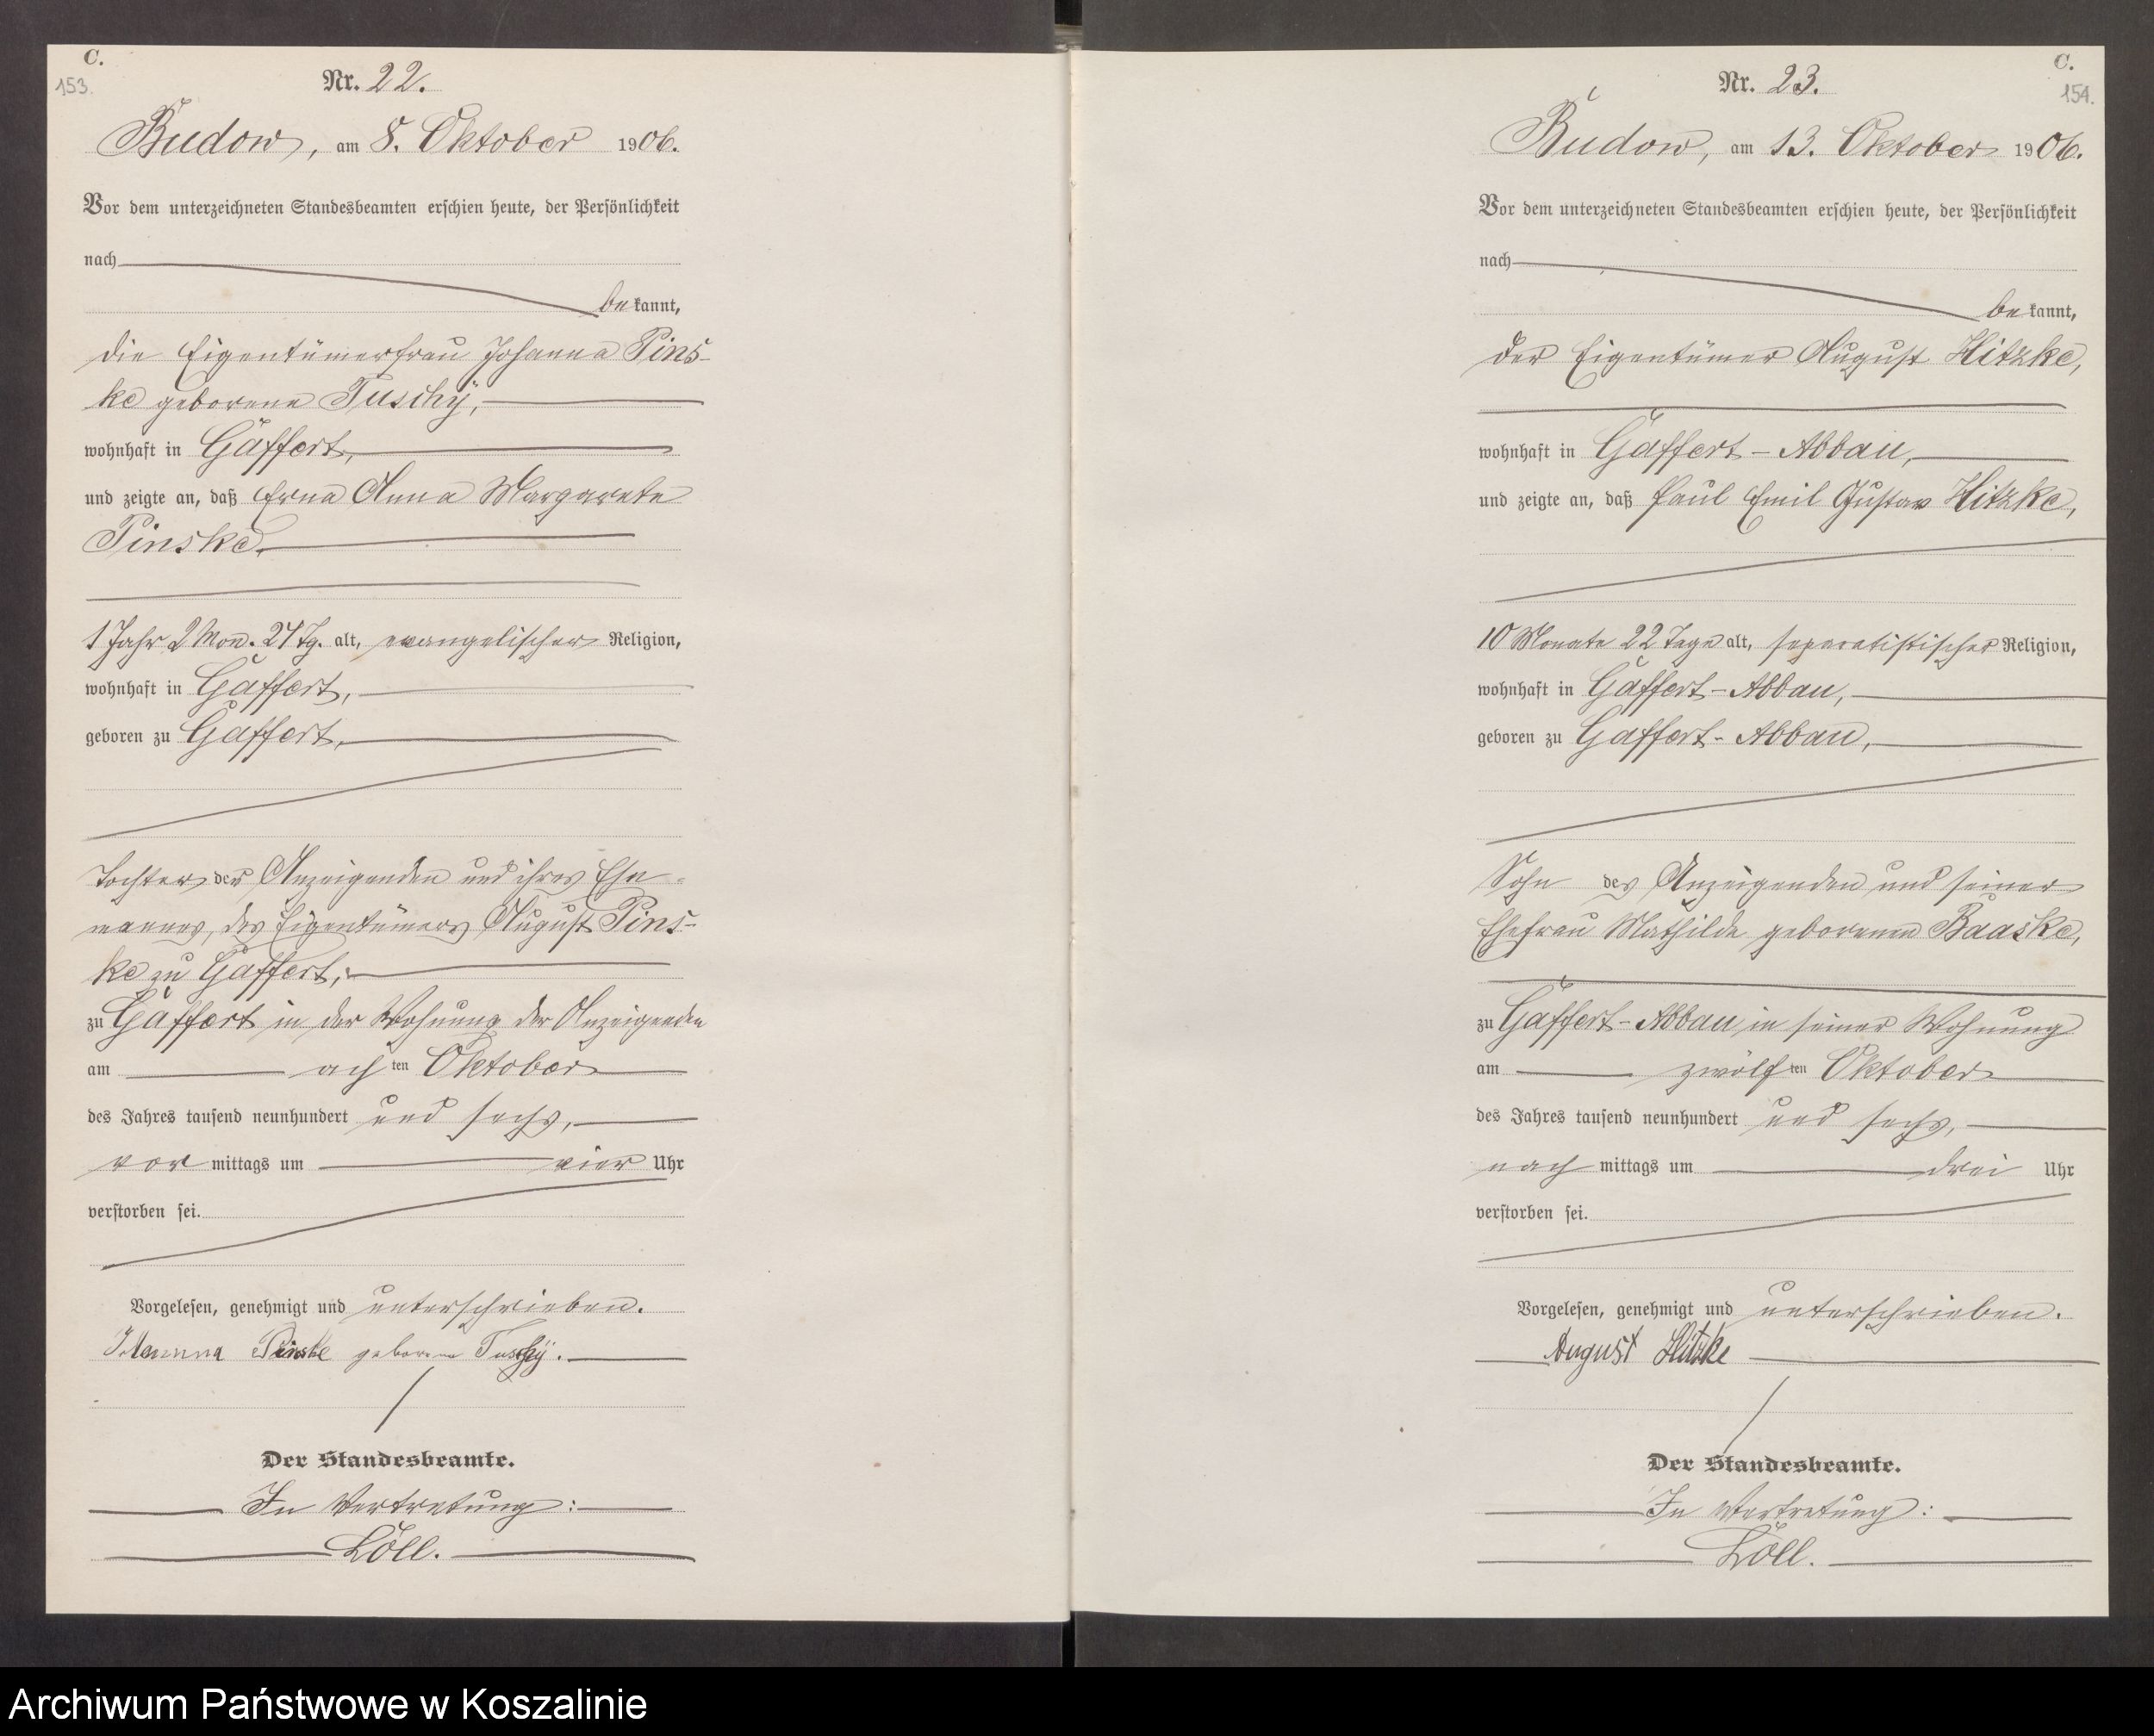 C.
153.
Nr. 22.
Budow, am 8. Oktober 1906.
Vor dem unterzeichneten Standesbeamten erschien heute, der Persönlichkeit
nach
bekannt,
die Eigentümerfrau Johanna Pins-
ke geborene Tuschÿ,
wohnhaft in Gaffert,
und zeigte an, daß Erna Anna Margarete
Pinske,
1 Jahr 2 Mon. 27 Tg. alt, evangelischer Religion,
wohnhaft in Gaffert,
geboren zu Gaffert,
Tochter der Anzeigenden und ihres Ehe-
mannes, des Eigentümers August Pins-
ke zu Gaffert,
zu Gaffert in der Wohnung der Anzeigenden
am achten Oktober
des Jahres tausend neunhundert und sechs,
vormittags um vier Uhr
verstorben sei.
Vorgelesen, genehmigt und unterschrieben.
Johanna Pinske geborene Tuschÿ.
Der Standesbeamte.
In Vertretung:
Löll.
C.
154.
Nr. 23.
Budow, am 13. Oktober 1906.
Vor dem unterzeichneten Standesbeamten erschien heute, der Persönlichkeit
nach
bekannt,
der Eigentümer August Hitzke,
wohnhaft in Gaffert-Abbau,
und zeigte an, daß Paul Emil Gustav Hitzke,
10 Monate 22 Tage alt, separatistischer Religion,
wohnhaft in Gaffert-Abbau,
geboren zu Gaffert-Abbau,
Sohn des Anzeigenden und seiner
Ehefrau Mathilde geborenen Baaske,
zu Gaffert-Abbau in seiner Wohnung
am zwölften Oktober
des Jahres tausend neunhundert und sechs,
nachmittags um drei Uhr
verstorben sei.
Vorgelesen, genehmigt und unterschrieben.
August Hitzke
Der Standesbeamte.
In Vertretung:
Löll.
Archiwum Państwowe w Koszalinie